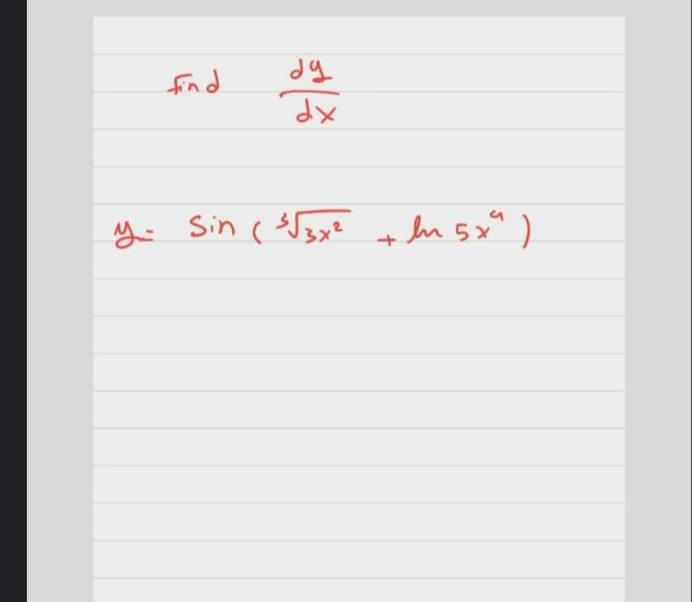 find dy/dx
y = Sin ( ∛3x² + ln 5x⁴ )